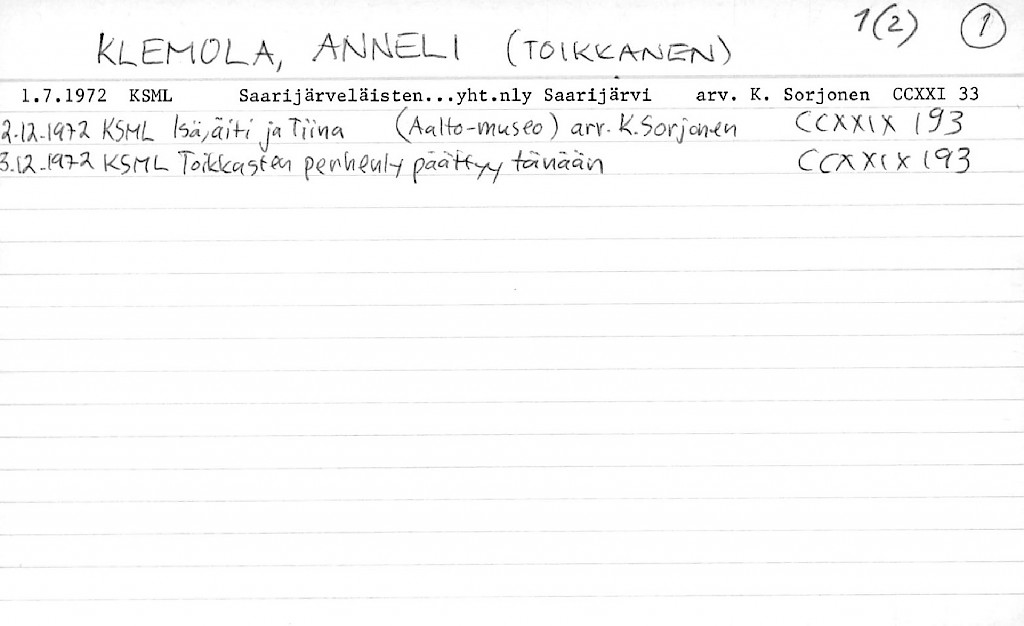 1(2) 1
KLEMOLA, ANNELI (TOIKKANEN)
1.7.1972 KSML Saarijärveläisten...yht.nly Saarijärvi arv. K. Sorjonen CCXXI 33
2.12.1972 KSML Isä, äiti ja Tiina (Aalto-museo) arv. K. Sorjonen CCXXIX 193
3.12.1972 KSML Toikkasten perhenly päättyy tänään CCXXIX 193